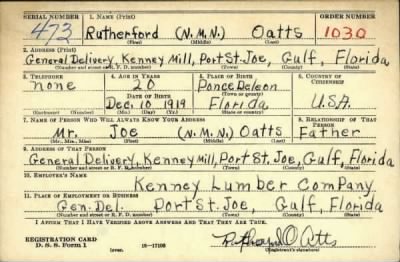 SERIAL NUMBER 1. NAME (Print) ORDER NUMBER
473 Rutherford (N.M.N.) Oatts 1030
(First) (Middle) (Last)
2. ADDRESS (Print)
General Delivery, Kenney Mill, Port St. Joe, Gulf, Florida
(Number and street or R. F. D. number) (Town) (County) (State)
3. TELEPHONE 4. AGE IN YEARS 5. PLACE OF BIRTH 6. COUNTRY OF CITIZENSHIP
none 20 Ponce Deleon
DATE OF BIRTH (Town or county)
Dec. 10 1919 Florida U.S.A.
(Exchange) (Number) (Mo.) (Day) (Yr.) (State or country)
7. NAME OF PERSON WHO WILL ALWAYS KNOW YOUR ADDRESS 8. RELATIONSHIP OF THAT PERSON
Mr. Joe (N.M.N.) Oatts Father
(Mr., Mrs., Miss) (First) (Middle) (Last)
9. ADDRESS OF THAT PERSON
General Delivery, Kenney Mill, Port St. Joe, Gulf, Florida
(Number and street or R. F. D. number) (Town) (County) (State)
10. EMPLOYER'S NAME
Kenney Lumber Company
11. PLACE OF EMPLOYMENT OR BUSINESS
Gen. Del. Port St. Joe, Gulf, Florida
(Number and street or R. F. D. number) (Town) (County) (State)
I AFFIRM THAT I HAVE VERIFIED ABOVE ANSWERS AND THAT THEY ARE TRUE.
REGISTRATION CARD
D. S. S. Form 1 (over) 16-17105
(Registrant's signature)